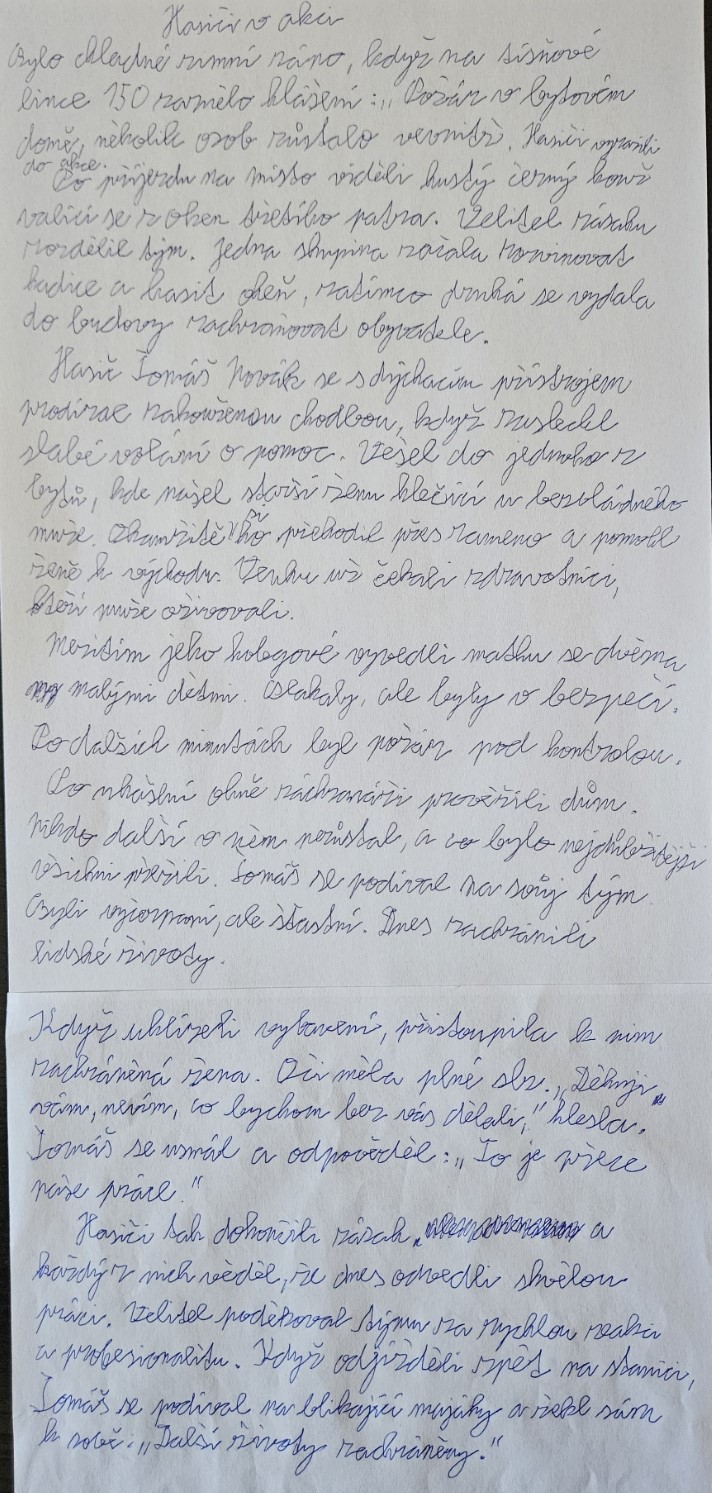 Hasiči v akci
Bylo chladné zimní ráno, když na tísňové
lince 150 zaznělo hlášení: „Požár v bytovém
domě, několik osob zůstalo uvnitř. Hasiči vyrazili
do akce.
Po příjezdu na místo viděli hustý černý kouř
valící se z oken třetího patra. Velitel zásahu
rozdělil tým. Jedna skupina začala rozvinovat
hadice a hasit oheň, zatímco druhá se vydala
do budovy zachraňovat obyvatele.
Hasič Tomáš Novák se s dýchacím přístrojem
prodíral zakouřenou chodbou, když zaslechl
slabé volání o pomoc. Vešel do jednoho z
bytů, kde našel starší ženu klečící u bezvládného
muže. Okamžitě si ho přehodil přes rameno a pomohl
ženě k východu. Venku už čekali zdravotníci,
kteří muže oživovali.
Mezitím jeho kolegové vyvedli matku se dvěma
malými dětmi. Plakaly, ale byly v bezpečí.
Po dalších minutách byl požár pod kontrolou.
Po uhašení ohně záchranáři prověřili dům.
Nikdo další v něm nezůstal, a co bylo nejdůležitější
všichni přežili. Tomáš se podíval na svůj tým.
Byli vyčerpaní, ale šťastní. Dnes zachránili
lidské životy.
Když uklízeli vybavení, přistoupila k nim
zachráněná žena. Oči měla plné slz. „Děkuji
vám, nevím, co bychom bez vás dělali,“ hlesla.
Tomáš se usmál a odpověděl: „To je přece
naše práce.“
Hasiči tak dokončili zásah a
každý z nich věděl, že dnes odvedli skvělou
práci. Velitel poděkoval týmu za rychlou reakci
a profesionalitu. Když odjížděli zpět na stanici,
Tomáš se podíval na blikající majáky a řekl sám
k sobě: „Další životy zachráněny.“